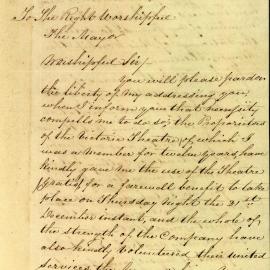 To The Right Worshipful
The Mayor
Worshipful Sir/
You will please pardon
the liberty of my addressing you
when I inform you that necessity
compells me to do so, the Proprietors
of the Victoria Theatre, of which I
was a Member for twelve years, have
kindly gave me the use of the Theatre
(gratis) for a farewell benefit to take
place on Thursday Night the 21st
December instant, and the whole of
the strength of the Company have
also kindly Volunteered their united
services